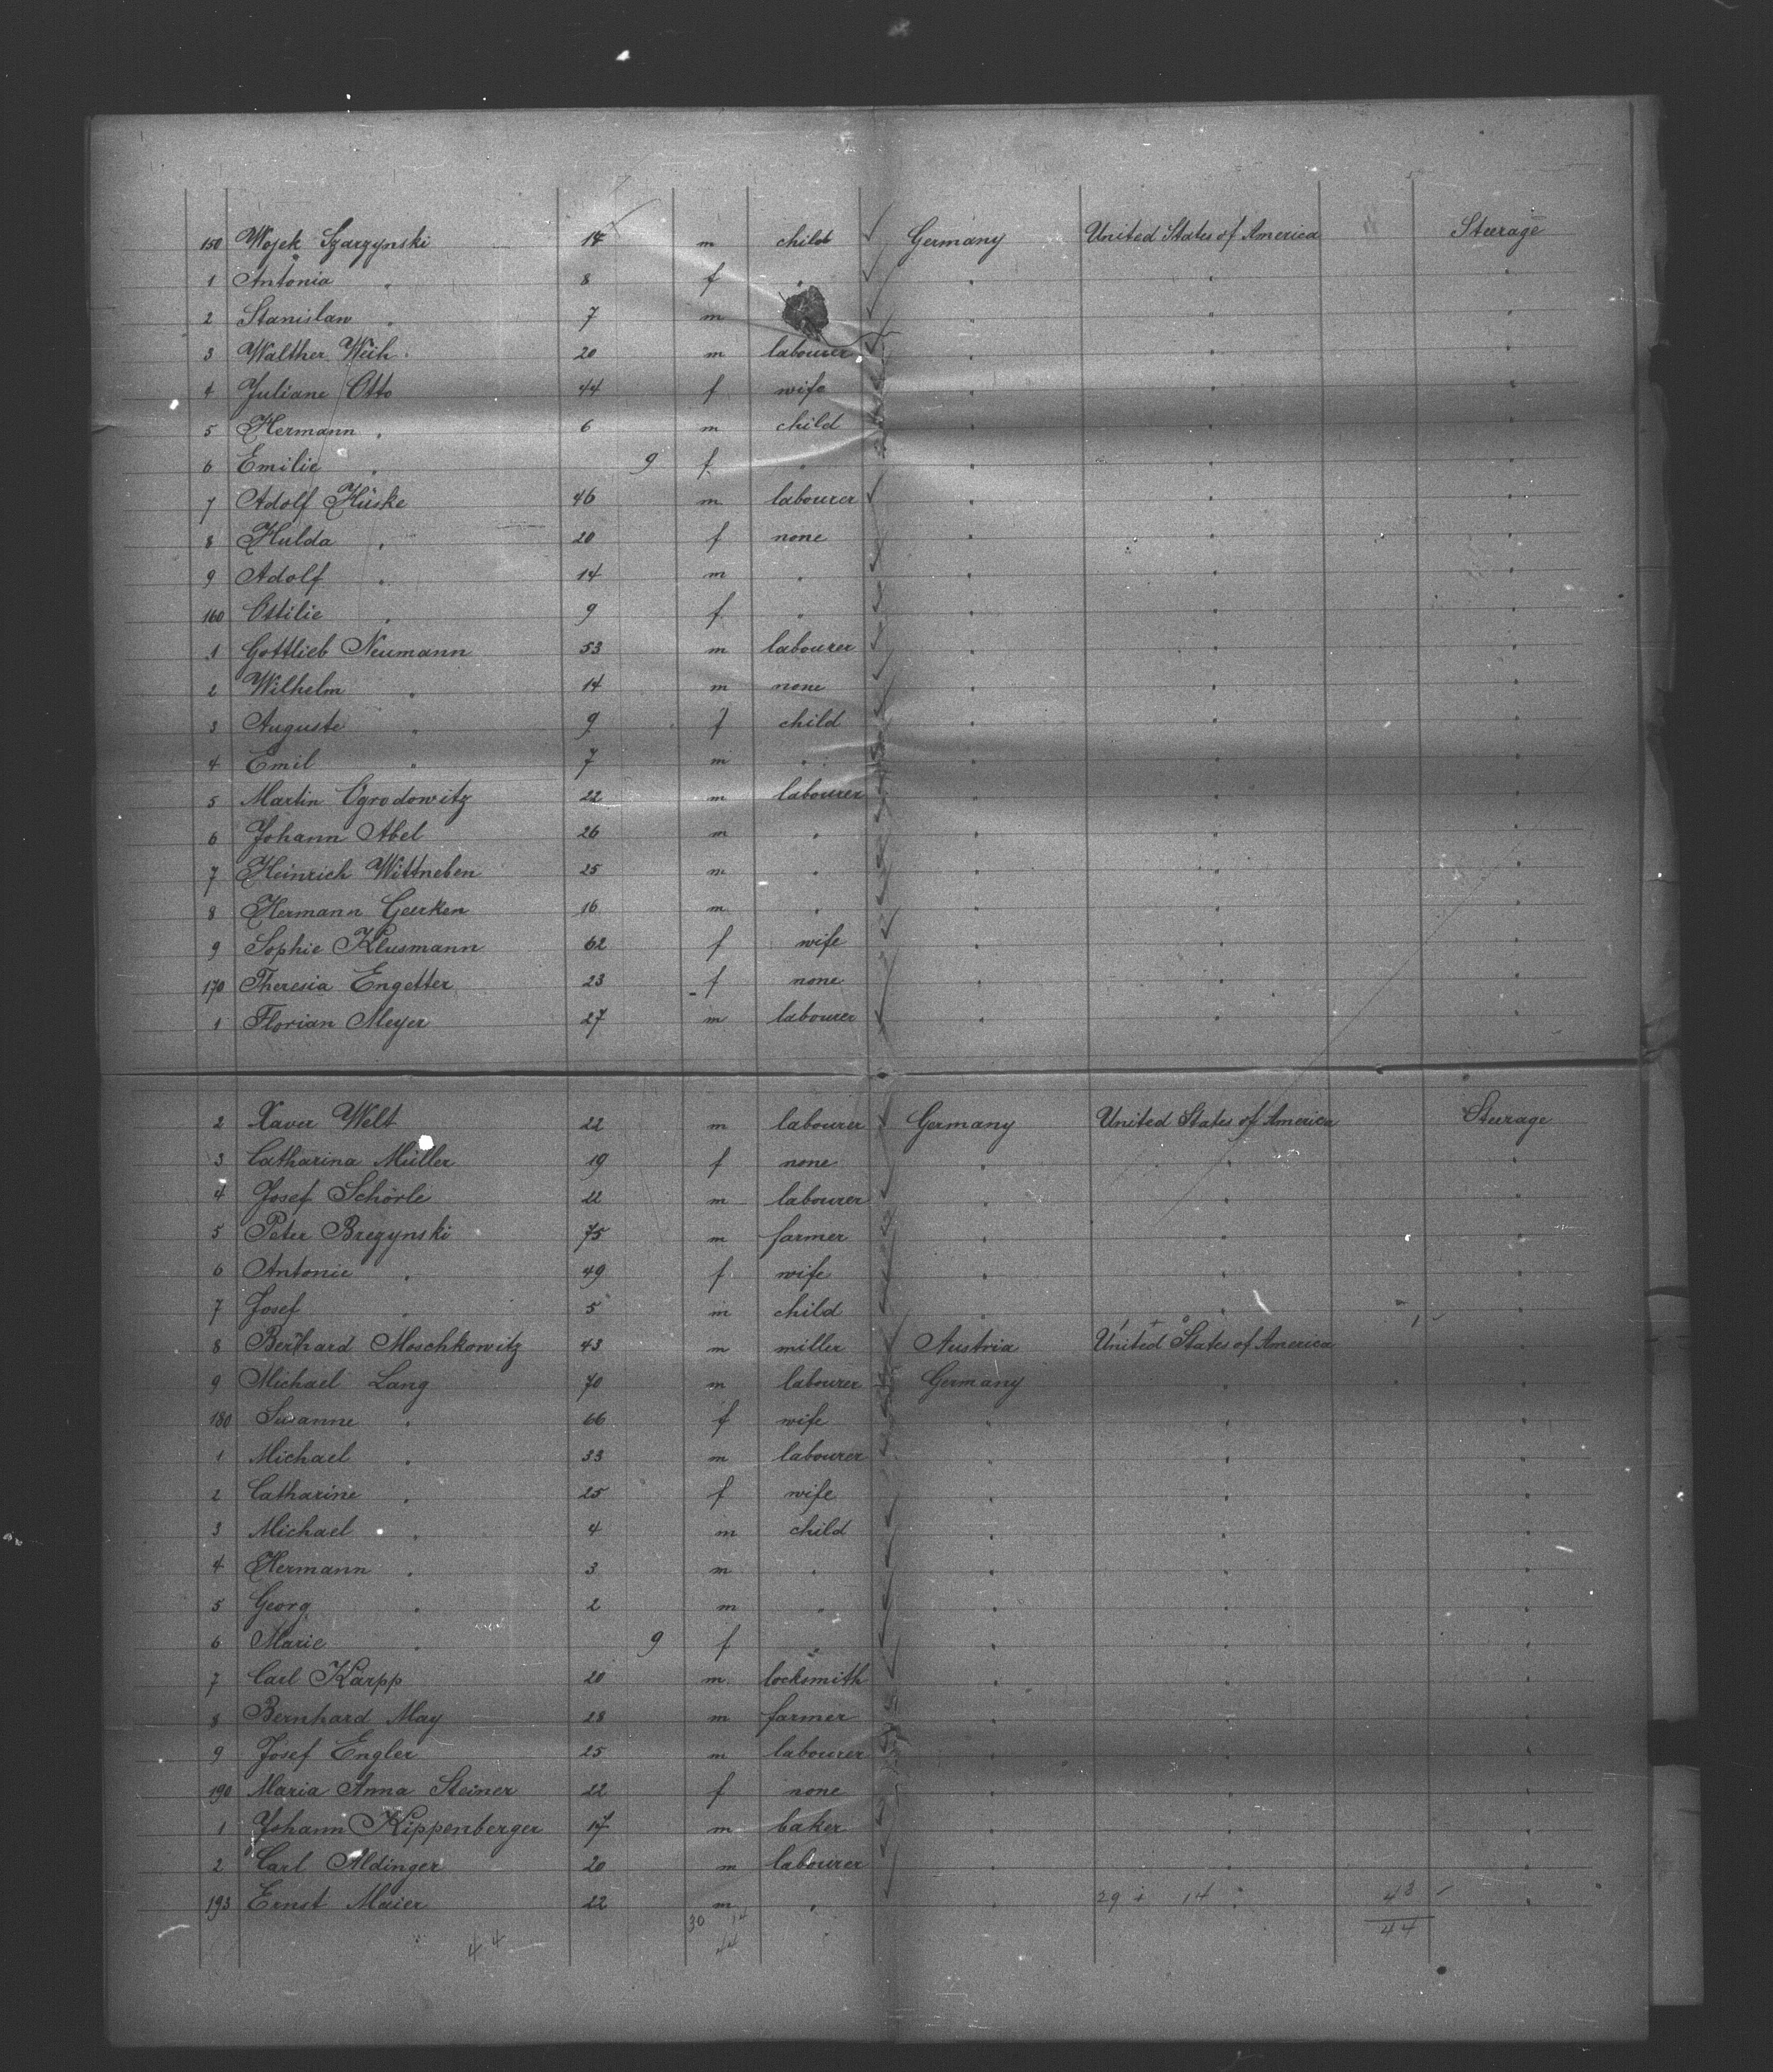 150 Wojek Szarzynski 14 m child Germany United States of America Steerage
1 Antonia " 8 f " " " "
2 Stanislaw " 7 m " " "
3 Walther Weih 20 m labourer " " "
4 Juliane Otto 44 f wife " " "
5 Hermann " 6 m child " " "
6 Emilie " 9 f " " " "
7 Adolf Hüske 46 m labourer " " "
8 Hulda " 20 f none " " "
9 Adolf " 14 m " " " "
160 Ottilie " 9 f " " " "
1 Gottlieb Neumann 53 m labourer " " "
2 Wilhelm " 14 m none " " "
3 Auguste " 9 f child " " "
4 Emil " 7 m " " " "
5 Martin Ogrodowitz 22 m labourer " " "
6 Johann Abel 26 m " " " "
7 Heinrich Wittneben 25 m " " " "
8 Hermann Geerken 16 m " " " "
9 Sophie Klusmann 62 f wife " " "
170 Theresia Engetter 23 f none " " "
1 Florian Meyer 27 m labourer " " "
2 Xaver Welt 22 m labourer Germany United States of America Steerage
3 Catharina Müller 19 f none " " "
4 Josef Schörle 22 m labourer " " "
5 Peter Bregynski 75 m farmer " " "
6 Antonie " 49 f wife " " "
7 Josef " 5 m child " " "
8 Bernhard Moschkowitz 43 m miller Austria United States of America "
9 Michael Lang 70 m labourer Germany " "
180 Susanne " 66 f wife " " "
1 Michael " 33 m labourer " " "
2 Catharine " 25 f wife " " "
3 Michael " 4 m child " " "
4 Hermann " 3 m " " " "
5 Georg " 2 m " " " "
6 Marie " 9 f " " " "
7 Carl Karpp 20 m locksmith " " "
8 Bernhard May 28 m farmer " " "
9 Josef Engler 25 m labourer " " "
190 Maria Anna Steiner 22 f none " " "
1 Johann Kippenberger 17 m baker " " "
2 Carl Aldinger 20 m labourer " " "
193 Ernst Maier 22 m " " 29 + 14 43 "
30 14 44
44 44